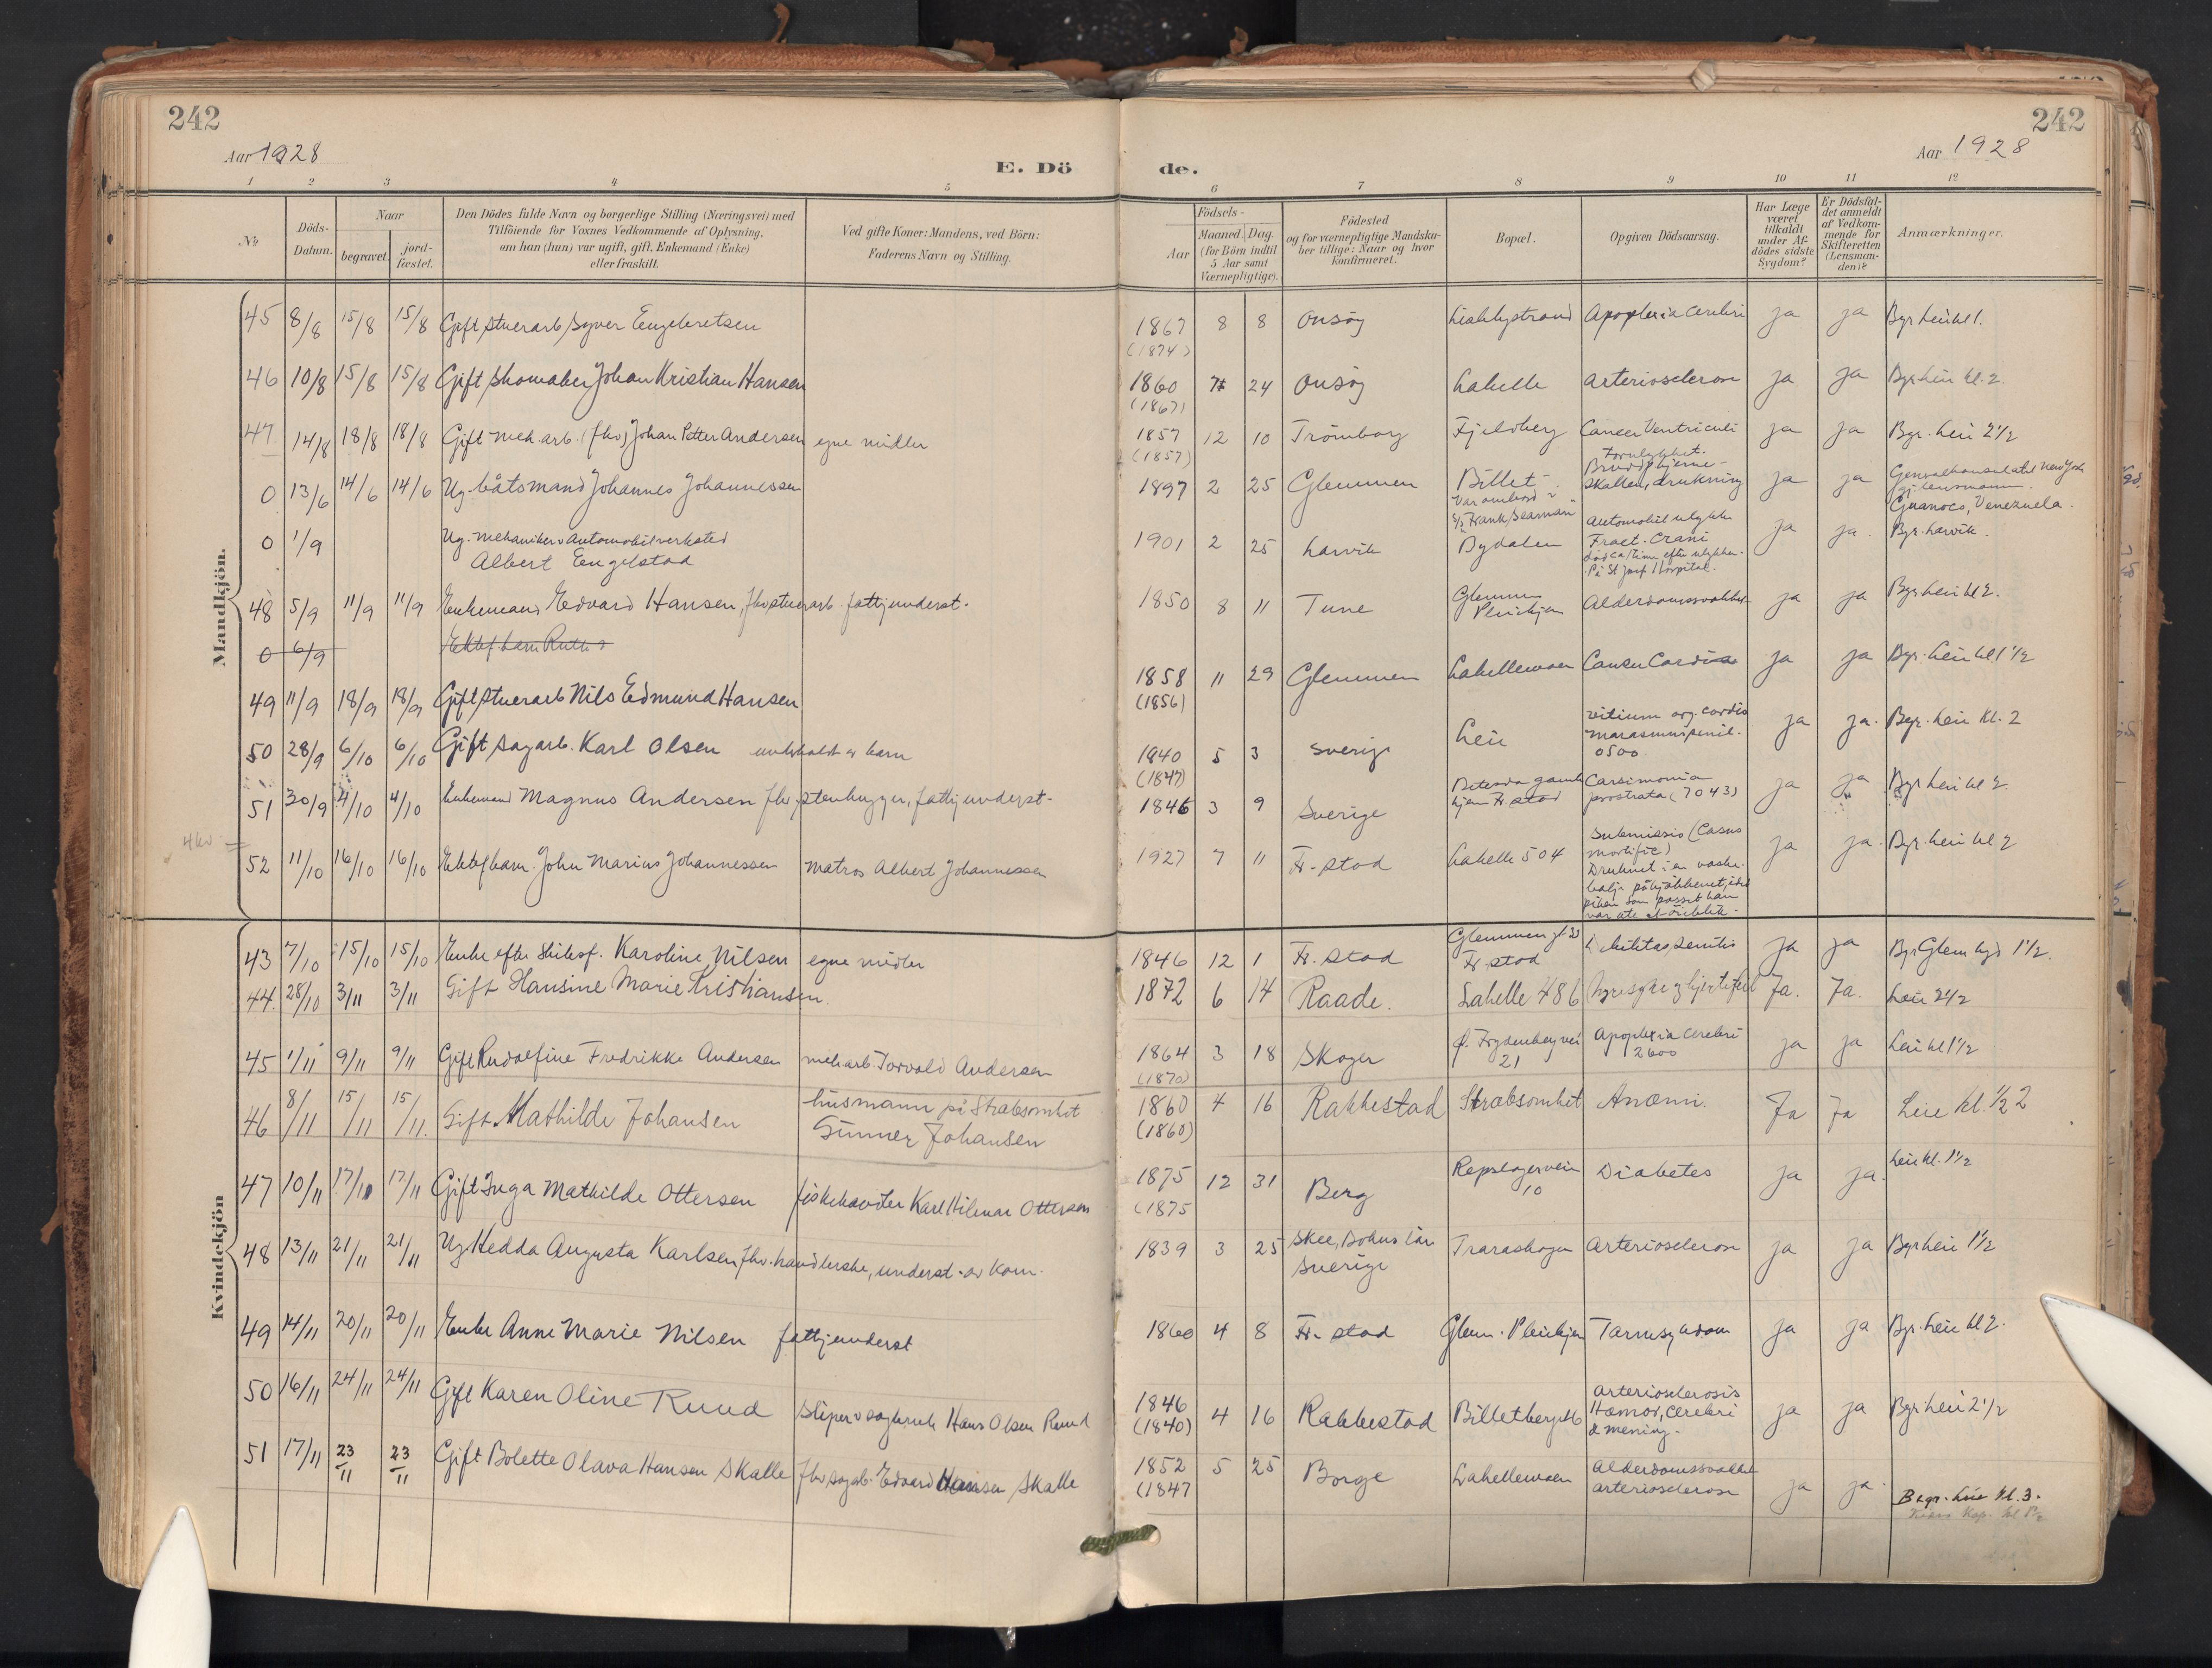 242
242
Aar 1928
Aar 1928
E. Dö
de.
1 2 3 4 5 6 7 8 9 10 11 12
No
Döds-
Datum.
Naar
begravet.
jord-
fæstet.
Den Dödes fulde Navn og borgerlige Stilling (Næringsvei) med
Tilföiende for Voxnes Vedkommende af Oplysning,
om han (hun) var ugift, gift, Enkemand (Enke)
eller fraskilt.
Ved gifte Koner: Mandens, ved Börn:
Faderens Navn og Stilling.
Födsels-
Aar
Maaned. Dag.
(for Börn indtil
5 Aar samt
Værnepligtige).
Födested
og for værnepligtige Mandska-
ber tillige: Naar og hvor
konfirmeret.
Bopæl.
Opgiven Dödsaarsag.
Har Læge
været
tilkaldt
under Af-
dödes sidste
Sygdom?
Er Dödsfal-
det anmeldt
af Vedkom-
mende for
Skifteretten
(Lensman-
den)?
Anmærkninger.
Mandkjön.
45 8/8 15/8 15/8 Gift stuerarb Syver Engebretsen 1867 8 8 Onsøy Apoplexia cerebri ja ja
(1874)
46 10/8 15/8 15/8 Gift skomaker Johan Kristian Hansen 1860 7 24 Onsøy Lahelle arteriosclerose ja ja Bgr. Leie kl. 2.
(1867)
47 14/8 18/8 18/8 Gift mek. arb. (fhv) Johan Petter Andersen egne midler 1857 12 10 Trömborg Fjeldberg Cancer Ventriculi ja ja Bgr. Leie 2 1/2
(1857)
0 13/6 14/6 14/6 Ug. båtsmand Johannes Johannessen 1897 2 25 Glemmen Billet Skallen, drukning ja ja
Var ombord
S/S Frank Seaman
Guanoco, Venezuela.
0 1/9 Ug. mekaniker v Automobilverksted
Albert Engelstad 1901 2 25 Larvik Bydalen Automobilulykke
Fract. Crani ja ja. Bgr. Larvik.
død ca 1 time efter ulykken.
På St Josef Hospital.
48 5/9 11/9 11/9 Enkemand Edvard Hansen, fhv stuerarb. fattigunderst. 1850 8 11 Tune Glemmen
Pleiehjem Alderdomssvakhet ja ja Bgr. Leie kl 2.
0 6/9 Ektef. barn Ruth
49 11/9 18/9 18/9 Gift stuerarb Nils Edmund Hansen 1858 11 29 Glemmen Lahellemoen Cancer Cardia ja ja Bgr. Leie kl. 1 1/2
(1856)
50 28/9 6/10 6/10 Gift sagarb. Karl Olsen underholdt av barn 1840 5 3 Sverige Leie vitium org. cordis
marasmus senil.
0500 ja ja. Bgr. Leie kl. 2
(1847)
51 30/9 4/10 4/10 Enkemand Magnus Andersen fhv. stenhugger, fattigunderst. 1846 3 9 Sverige Betesda gamle
hjem Fr. stad Carsimonia
prostrata (7043) ja ja Bgr. Leie kl 2.
52 11/10 16/10 16/10 Ektef barn. John Marius Johannessen Matros Albert Johannessen 1927 7 11 Fr. stad Lahelle 504 Submissio (Casus
mortific)
Druknet i en vaske-
balje på kjøkkenet, idet
piken som passet ham
var ute et öieblik. ja ja. Bgr. Leie kl 2
Kvindekjön
43 7/10 15/10 15/10 Enke efter skibsf. Karoline Nilsen egne midler 1846 12 1 Fr. stad Fr stad Debilitas senilis ja ja Bgr Glem 1 1/2.
44. 28/10 3/11 3/11 Gift Hansine Marie Kristiansen. 1872 6 14 Raade. Lahelle 486 Ja. Ja. Leie 2 1/2
45 1/11 9/11 9/11 Gift Rudolfine Fredrikke Andersen mek arb. Torvald Andersen 1864 3 18 Skoger Ø. Frydenbergvei
21 Apoplexia cerebri
2600 ja ja Leie kl 1 1/2
(1870)
46 8/11 15/11 15/11. Gift. Mathilde Johansen husmann på Stræbsomhet
Gunner Johansen 1860 4 16 Rakkestad Stræbsomhet Anæmi. Ja Ja Leie kl. 1/2 2
(1860)
47 10/11 17/11 17/11 Gift Inga Mathilde Ottersen fiskehandler Karl Hilmar Ottersen 1875 12 31 Berg Repslagerveien
10 Diabetes ja ja. Leie kl. 1 1/2
(1875
48 13/11 21/11 21/11 Ug Hedda Augusta Karlsen fhv. handlerske, underst. av kom. 1839 3 25 Skee, Bohus län
Sverige Traraskogen Arteriosclerose ja ja Bgr Leie 1 1/2
49 14/11 20/11 20/11 Enke Anne Marie Nilsen fattigunderst 1860 4 8 Fr. stad Glem. Pleiehjem Tarmsykdom ja ja Bgr. Leie kl 2.
50 16/11 24/11 24/11 Gift Karen Oline Ruud sliper v sagbruk Hans Olsen Ruud 1846
(1840) 4 16 Rakkestad Billetberg arteriosclerosis
Hæmor, cerebri
& mening. ja ja Bgr Leie 2 1/2
51 17/11 23/11 23/11 Gift Bolette Olava Hansen Skalle fhv sagarb. Edvard Hansen Skalle 1852 5 25 Borge Lahellemoen Alderdomssvakhet
arteriosclerose ja ja Begr. Leie kl. 3.
(1847